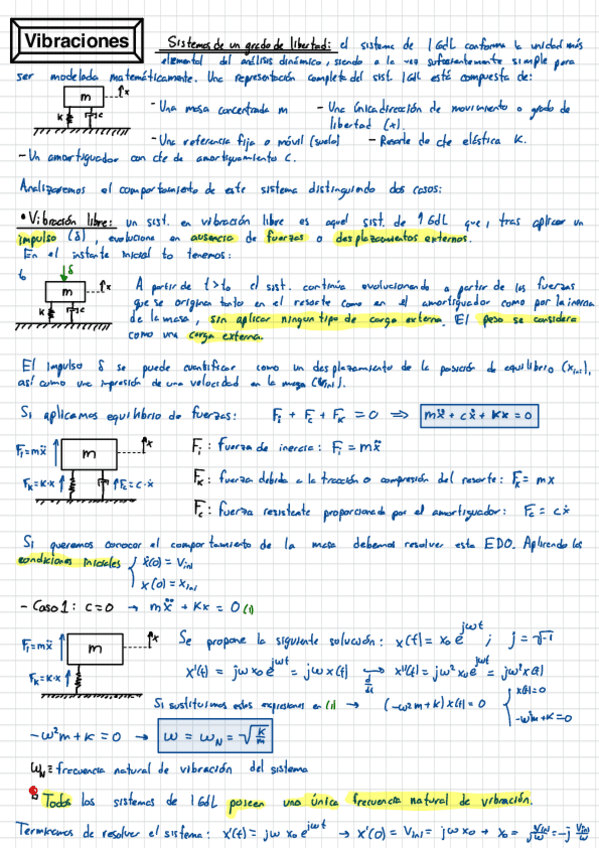 Vibraciones
Sistemas de un grado de libertad: el sistema de 1GdL conforma la unidad más
elemental del análisis dinámico, siendo a la vez suficientemente simple para
ser modelada matemáticamente. Una representación completa del sist. 1GdL está compuesta de:
m x
k c
- Una masa concentrada m - Una única dirección de movimiento o grado de
libertad (x).
- Una referencia fija o móvil (suelo) - Resorte de cte elástica K.
- Un amortiguador con cte de amortiguamiento C.
Analizaremos el comportamiento de este sistema distinguiendo dos casos:
• Vibración libre: un sist. en vibración libre es aquel sist. de 1GdL que, tras aplicar un
impulso (δ), evoluciona en ausencia de fuerzas o desplazamientos externos.
En el instante inicial to tenemos:
to δ
m x
k c
A partir de t>to el sist. continúa evolucionando a partir de las fuerzas
que se originan tanto en el resorte como en el amortiguador como por la inercia
de la masa, sin aplicar ningún tipo de carga externa. El peso se considera
como una carga externa.
El impulso δ se puede cuantificar como un desplazamiento de la posición de equilibrio (x_ini),
así como una impresión de una velocidad en la masa (v_ini).
Si aplicamos equilibrio de fuerzas: F_i + F_c + F_k = 0 ⇒ mẍ + cẋ + Kx = 0
F_i=mẍ m x
F_k=K·x F_c=c·ẋ
F_i: fuerza de inercia: F_i = mẍ
F_k: fuerza debida a la tracción o compresión del resorte: F_k = mx
F_c: fuerza resistente proporcionada por el amortiguador: F_c = cẋ
Si queremos conocer el comportamiento de la masa debemos resolver esta EDO. Aplicando las
condiciones iniciales { ẋ(0) = V_ini
x(0) = x_ini
- Caso 1: c=0 → mẍ + Kx = 0 (1)
F_i=mẍ m x
F_k=K·x
Se propone la siguiente solución: x(t) = x₀ e^{jωt} ; j = √-1
x'(t) = jω x₀ e^{jωt} = jω x(t) ↔ d/dt x''(t) = jω² x₀ e^{jωt} = jω² x(t)
Si sustituimos estas expresiones en (1) → (-ω²m + k) x(t) = 0 { x(t)=0
-ω²m+K=0
-ω²m + K = 0 → ω = ω_N = √(K/m)
ω_N ≡ frecuencia natural de vibración del sistema
Todos los sistemas de 1GdL poseen una única frecuencia natural de vibración.
Terminamos de resolver el sistema: x'(t) = jω x₀ e^{jωt} → x'(0) = V_ini = jω x₀ → x₀ = V_ini/jω = -j V_ini/ω